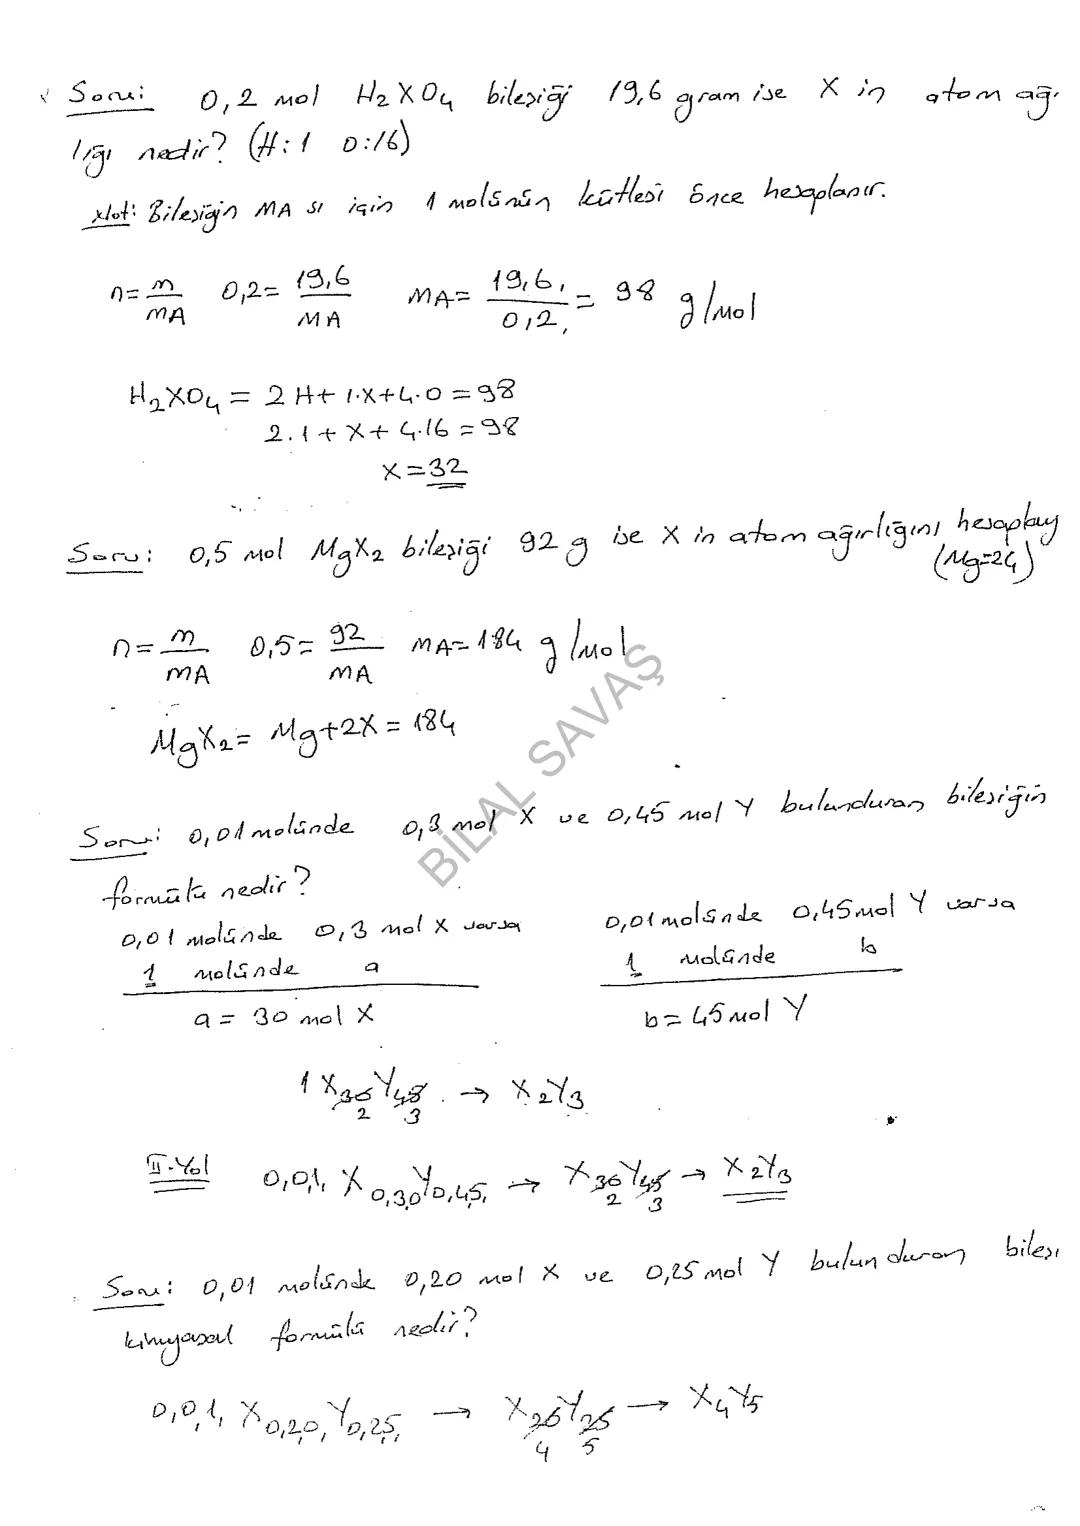 Soru: 0,2 mol H2XO4 bileşiği 19,6 gram ise X in atom ağır
lığı nedir? (H:1 O:16)
Not: Bileşiğin MA sı için 1 molünün kütlesi önce hesaplanır.
n=m/MA 0,2=19,6/MA MA=19,6,/0,2,=98 g/mol
H2XO4 = 2H+1.X+4.O=98
2.1+X+4.16=98
X=32
Soru: 0,5 mol MgX2 bileşiği 92 g ise X in atom ağırlığını hesaplay
(Mg=24)
n=m/MA 0,5=92/MA MA=184 g/mol
MgX2= Mg+2X=184
BİLAL SAVAŞ
Soru: 0,01 molünde 0,3 mol X ve 0,45 mol Y bulunduran bileşiğin
formülü nedir?
0,01 molünde 0,3 mol X varsa 0,01 molünde 0,45 mol Y varsa
1 molünde a 1 molünde b
a = 30 mol X b=45 mol Y
1 X30Y45 → X2Y3
2 3
II.Yol 0,01, X0,30Y0,45, → X30Y45 → X2Y3
2 3
Soru: 0,01 molünde 0,20 mol X ve 0,25 mol Y bulunduran bileşi
kimyasal formülü nedir?
0,01, X0,20,Y0,25, → X20Y25 → X4Y5
4 5